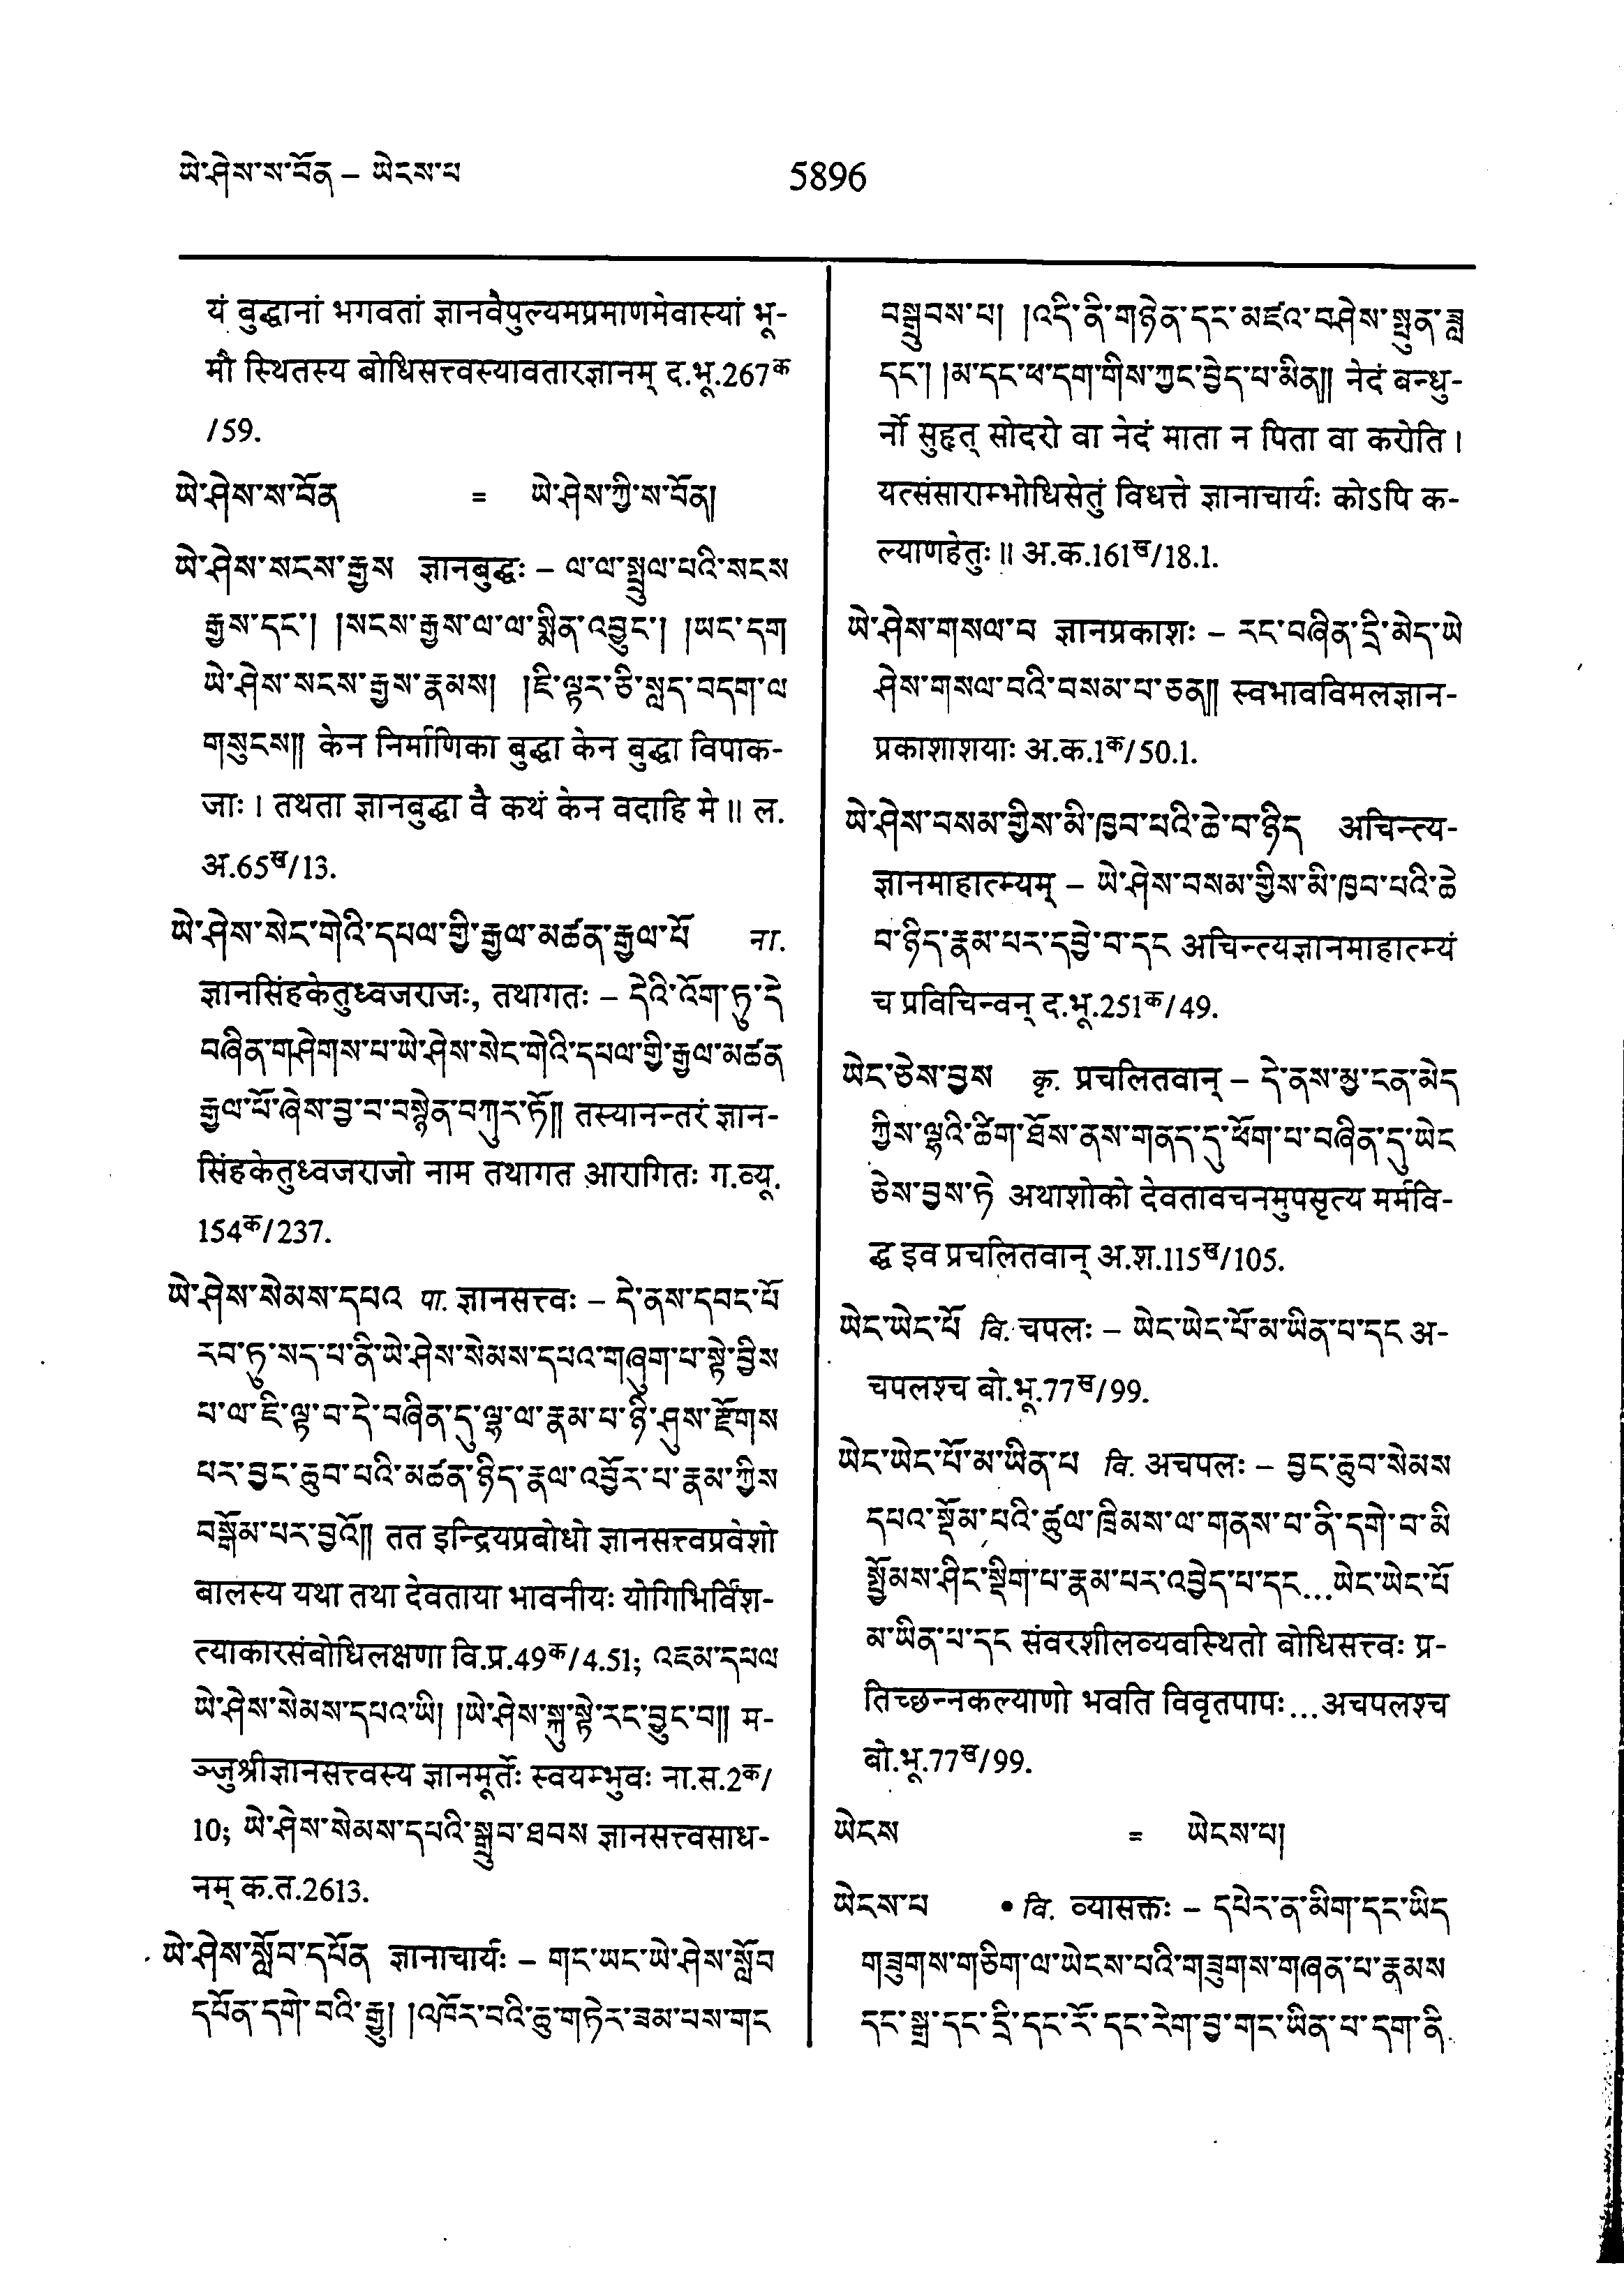 ཡེ་ཤེས་ས་བོན – ཡེངས་པ
5896
यं बुद्धानां भगवतां ज्ञानवैपुल्यमप्रमाणमेवास्यां भू-
मौ स्थितस्य बोधिसत्त्वस्यावतारज्ञानम् द.भू.267क
/59.
ཡེ་ཤེས་ས་བོན = ཡེ་ཤེས་ཀྱི་ས་བོན།
ཡེ་ཤེས་སངས་རྒྱས ज्ञानबुद्धः – ལ་ལ་སྤྲུལ་པའི་སངས
རྒྱས་དང་། །སངས་རྒྱས་ལ་ལ་སྨིན་འབྱུང་། །ཡང་དག
ཡེ་ཤེས་སངས་རྒྱས་རྣམས། །ཇི་ལྟར་ཅི་སླད་བདག་ལ
གསུངས།། केन निर्माणिका बुद्धा केन बुद्धा विपाक-
जाः । तथता ज्ञानबुद्धा वै कथं केन वदाहि मे ॥ ल.
अ.65ख/13.
ཡེ་ཤེས་སེང་གེའི་དཔལ་གྱི་རྒྱལ་མཚན་རྒྱལ་པོ ना.
ज्ञानसिंहकेतुध्वजराजः, तथागतः – དེའི་འོག་ཏུ་དེ
བཞིན་གཤེགས་པ་ཡེ་ཤེས་སེང་གེའི་དཔལ་གྱི་རྒྱལ་མཚན
རྒྱལ་པོ་ཞེས་བྱ་བ་བསྙེན་བཀུར་ཏོ།། तस्यानन्तरं ज्ञान-
सिंहकेतुध्वजराजो नाम तथागत आरागितः ग.व्यू.
154क/237.
ཡེ་ཤེས་སེམས་དཔའ पा. ज्ञानसत्त्वः – དེ་ནས་དབང་པོ
རབ་ཏུ་སད་པ་ནི་ཡེ་ཤེས་སེམས་དཔའ་གཞུག་པ་སྟེ་བྱིས
པ་ལ་ཇི་ལྟ་བ་དེ་བཞིན་དུ་ལྷ་ལ་རྣམ་པ་ཉི་ཤུས་རྫོགས
པར་བྱང་ཆུབ་པའི་མཚན་ཉིད་རྣལ་འབྱོར་པ་རྣམ་ཀྱིས
བསྒོམ་པར་བྱའོ།། तत इन्द्रियप्रबोधो ज्ञानसत्त्वप्रवेशो
बालस्य यथा तथा देवताया भावनीयः योगिभिर्विंश-
त्याकारसंबोधिलक्षणा वि.प्र.49क/4.51; འཇམ་དཔལ
ཡེ་ཤེས་སེམས་དཔའ་ཡི། །ཡེ་ཤེས་སྐུ་སྟེ་རང་བྱུང་བ།། म-
ञ्जुश्रीज्ञानसत्त्वस्य ज्ञानमूर्तेः स्वयम्भुवः ना.स.2क/
10; ཡེ་ཤེས་སེམས་དཔའི་སྒྲུབ་ཐབས ज्ञानसत्त्वसाध-
नम् क.त.2613.
ཡེ་ཤེས་སློབ་དཔོན ज्ञानाचार्यः – གང་ཡང་ཡེ་ཤེས་སློབ
དཔོན་དགེ་བའི་རྒྱུ། །འཁོར་བའི་ཆུ་གཏེར་ཟམ་པས་གང
བསྒྲུབས་པ། །འདི་ནི་གཉེན་དང་མཛའ་བཤེས་སྤུན་ཟླ
དང་། །མ་དང་ཕ་དག་གིས་ཀྱང་བྱེད་པ་མིན།། नेदं बन्धु-
र्नो सुहृत् सोदरो वा नेदं माता न पिता वा करोति ।
यत्संसाराम्भोधिसेतुं विधत्ते ज्ञानाचार्यः कोऽपि क-
ल्याणहेतुः ॥ अ.क.161ख/18.1.
ཡེ་ཤེས་གསལ་བ ज्ञानप्रकाशः – རང་བཞིན་དྲི་མེད་ཡེ
ཤེས་གསལ་བའི་བསམ་པ་ཅན།། स्वभावविमलज्ञान-
प्रकाशाशयाः अ.क.1क/50.1.
ཡེ་ཤེས་བསམ་གྱིས་མི་ཁྱབ་པའི་ཆེ་བ་ཉིད अचिन्त्य-
ज्ञानमाहात्म्यम् – ཡེ་ཤེས་བསམ་གྱིས་མི་ཁྱབ་པའི་ཆེ
བ་ཉིད་རྣམ་པར་དབྱེ་བ་དང अचिन्त्यज्ञानमाहात्म्यं
च प्रविचिन्वन् द.भू.251क/49.
ཡེང་ཅེས་བྱས कृ. प्रचलितवान् – དེ་ནས་མྱ་ངན་མེད
ཀྱིས་ལྷའི་ཚིག་ཐོས་ནས་གནད་དུ་ཕོག་པ་བཞིན་དུ་ཡེང
ཅེས་བྱས་ཏེ अथाशोको देवतावचनमुपसृत्य मर्मवि-
द्ध इव प्रचलितवान् अ.श.115ख/105.
ཡེང་ཡེང་པོ वि. चपलः – ཡེང་ཡེང་པོ་མ་ཡིན་པ་དང अ-
चपलश्च बो.भू.77ख/99.
ཡེང་ཡེང་པོ་མ་ཡིན་པ वि. अचपलः – བྱང་ཆུབ་སེམས
དཔའ་སྡོམ་པའི་ཚུལ་ཁྲིམས་ལ་གནས་པ་ནི་དགེ་བ་མི
སྤྱོམས་ཤིང་སྡིག་པ་རྣམ་པར་འབྱེད་པ་དང...ཡེང་ཡེང་པོ
མ་ཡིན་པ་དང संवरशीलव्यवस्थितो बोधिसत्त्वः प्र-
तिच्छन्नकल्याणो भवति विवृतपापः...अचपलश्च
बो.भू.77ख/99.
ཡེངས = ཡེངས་པ།
ཡེངས་པ • वि. व्यासक्तः – དཔེར་ན་མིག་དང་ཡིད
གཟུགས་གཅིག་ལ་ཡེངས་པའི་གཟུགས་གཞན་པ་རྣམས
དང་སྒྲ་དང་དྲི་དང་རོ་དང་རེག་བྱ་གང་ཡིན་པ་དག་ནི